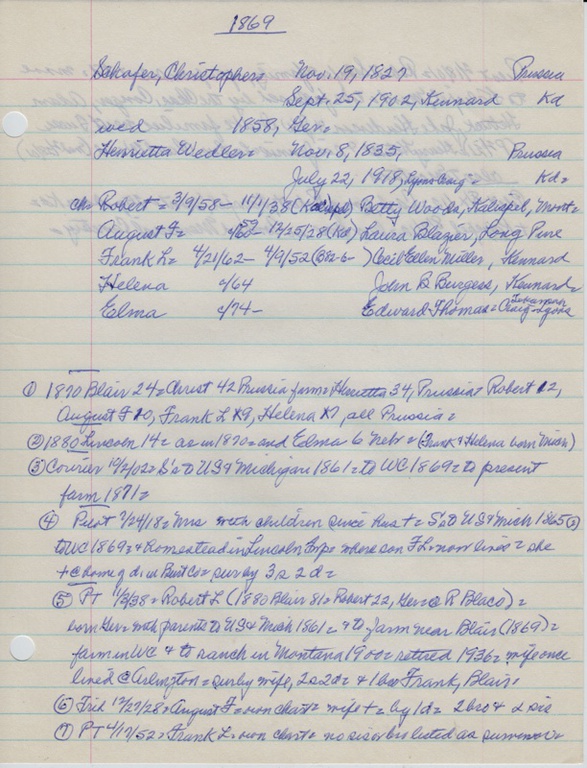 1869
Schafer, Christopher= Nov. 19, 1827 Prussia
Sept. 25, 1902, Kennard Kd
wed 1858, Ger=
Henrietta Wedler= Nov. 8, 1835, Prussia
July 22, 1918, Lyons Kd=
ch= Robert = 3/9/58 – 11/1/38 Betty Woods, Kalispel, Mont=
August F= 12/25/28 (Kd) Laura Blazier, Long Pine
Frank L= 4/21/62 – 4/9/52 Cecil Ellen Miller, Kennard
Helena c/64 John B Burgess, Kennard=
Elma c/74 – Edward Thomas = Craig - Lyons
Tekamah
① 1870 Blair 24= Christ 42 Prussia farm= Henrietta 34, Prussia= Robert 12,
August F 10, Frank L 9, Helena 7, all Prussia=
② 1880 Lincoln 14= as in 1870= and Edma 6 Nebr = (Frank & Helena born Mich)
③ Courier 10/2/02= S's to US & Michigan 1861= to WC 1869= to present
farm 1871=
④ Pilot 7/24/18= Mrs with children since hus += S's to US & Mich 1865
to WC 1869= & homestead in Lincoln = where son F L= now lives= she
+ @ home of d in Burt Co= sur by 3s 2d=
⑤ PT 11/3/38= Robert L (1880 Blair 81= Robert 22, Ger= @ R Blaco)=
born Ger= with parents to US & Mich 1861= & to farm near Blair (1869)=
farm in WC & to ranch in Montana 1900= retired 1936= wife once
lived @ Arlington= sur by wife, 2s 2d= & 1 bro Frank, Blair=
⑥ 12/27/28= August F= own chart= wife += by 1d= 2 bro & 2 sis
⑦ PT 4/17/52= Frank L= own chart= no sis or bro listed as survivors=